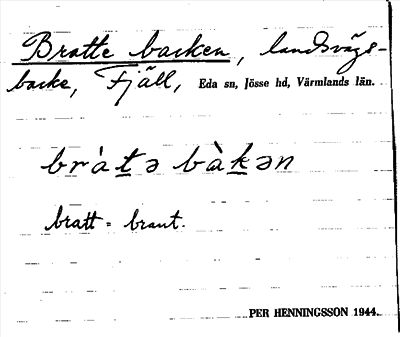 Bratte backen, landsvägs-
backe, Fjäll, Eda sn, Jösse hd, Värmlands län.
bràtə bàkən
bratt = brant.
PER HENNINGSSON 1944.